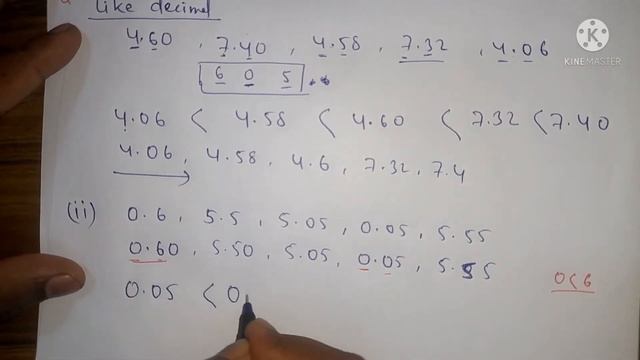 Like decimal
4.60, 7.40, 4.58, 7.32, 4.06
6 0 5
KINEMASTER
4.06 < 4.58 < 4.60 < 7.32 < 7.40
4.06, 4.58, 4.6, 7.32, 7.4
(ii) 0.6, 5.5, 5.05, 0.05, 5.55
0.60, 5.50, 5.05, 0.05, 5.55
0<6
0.05 < 0